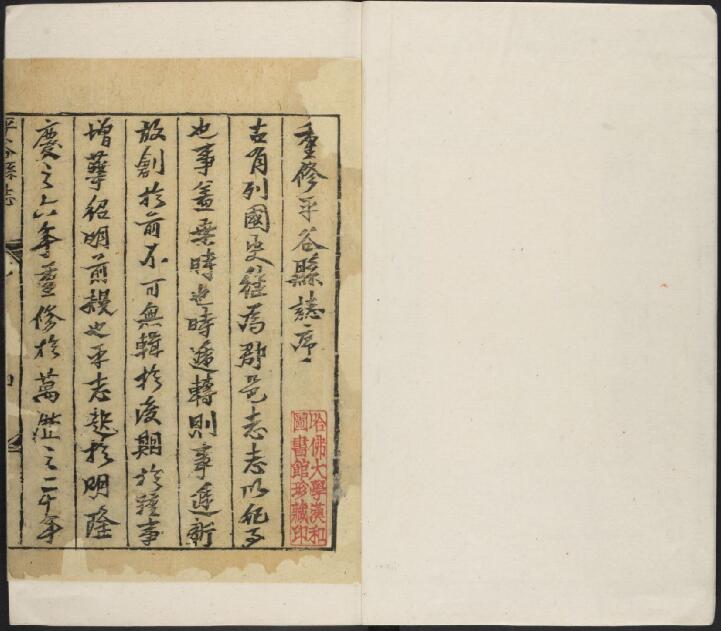 重修平谷縣誌序
古有列國史繼為郡邑志志以紀事
也事蓋乗時也時遞轉則事遞新
故創扵前不可無輯扵後期扵踵事
增華紹明前揆也平志起扵明隆
慶之六年重修扵萬曆之二十年
平谷縣志
哈佛大學漢和
圖書館珍藏印